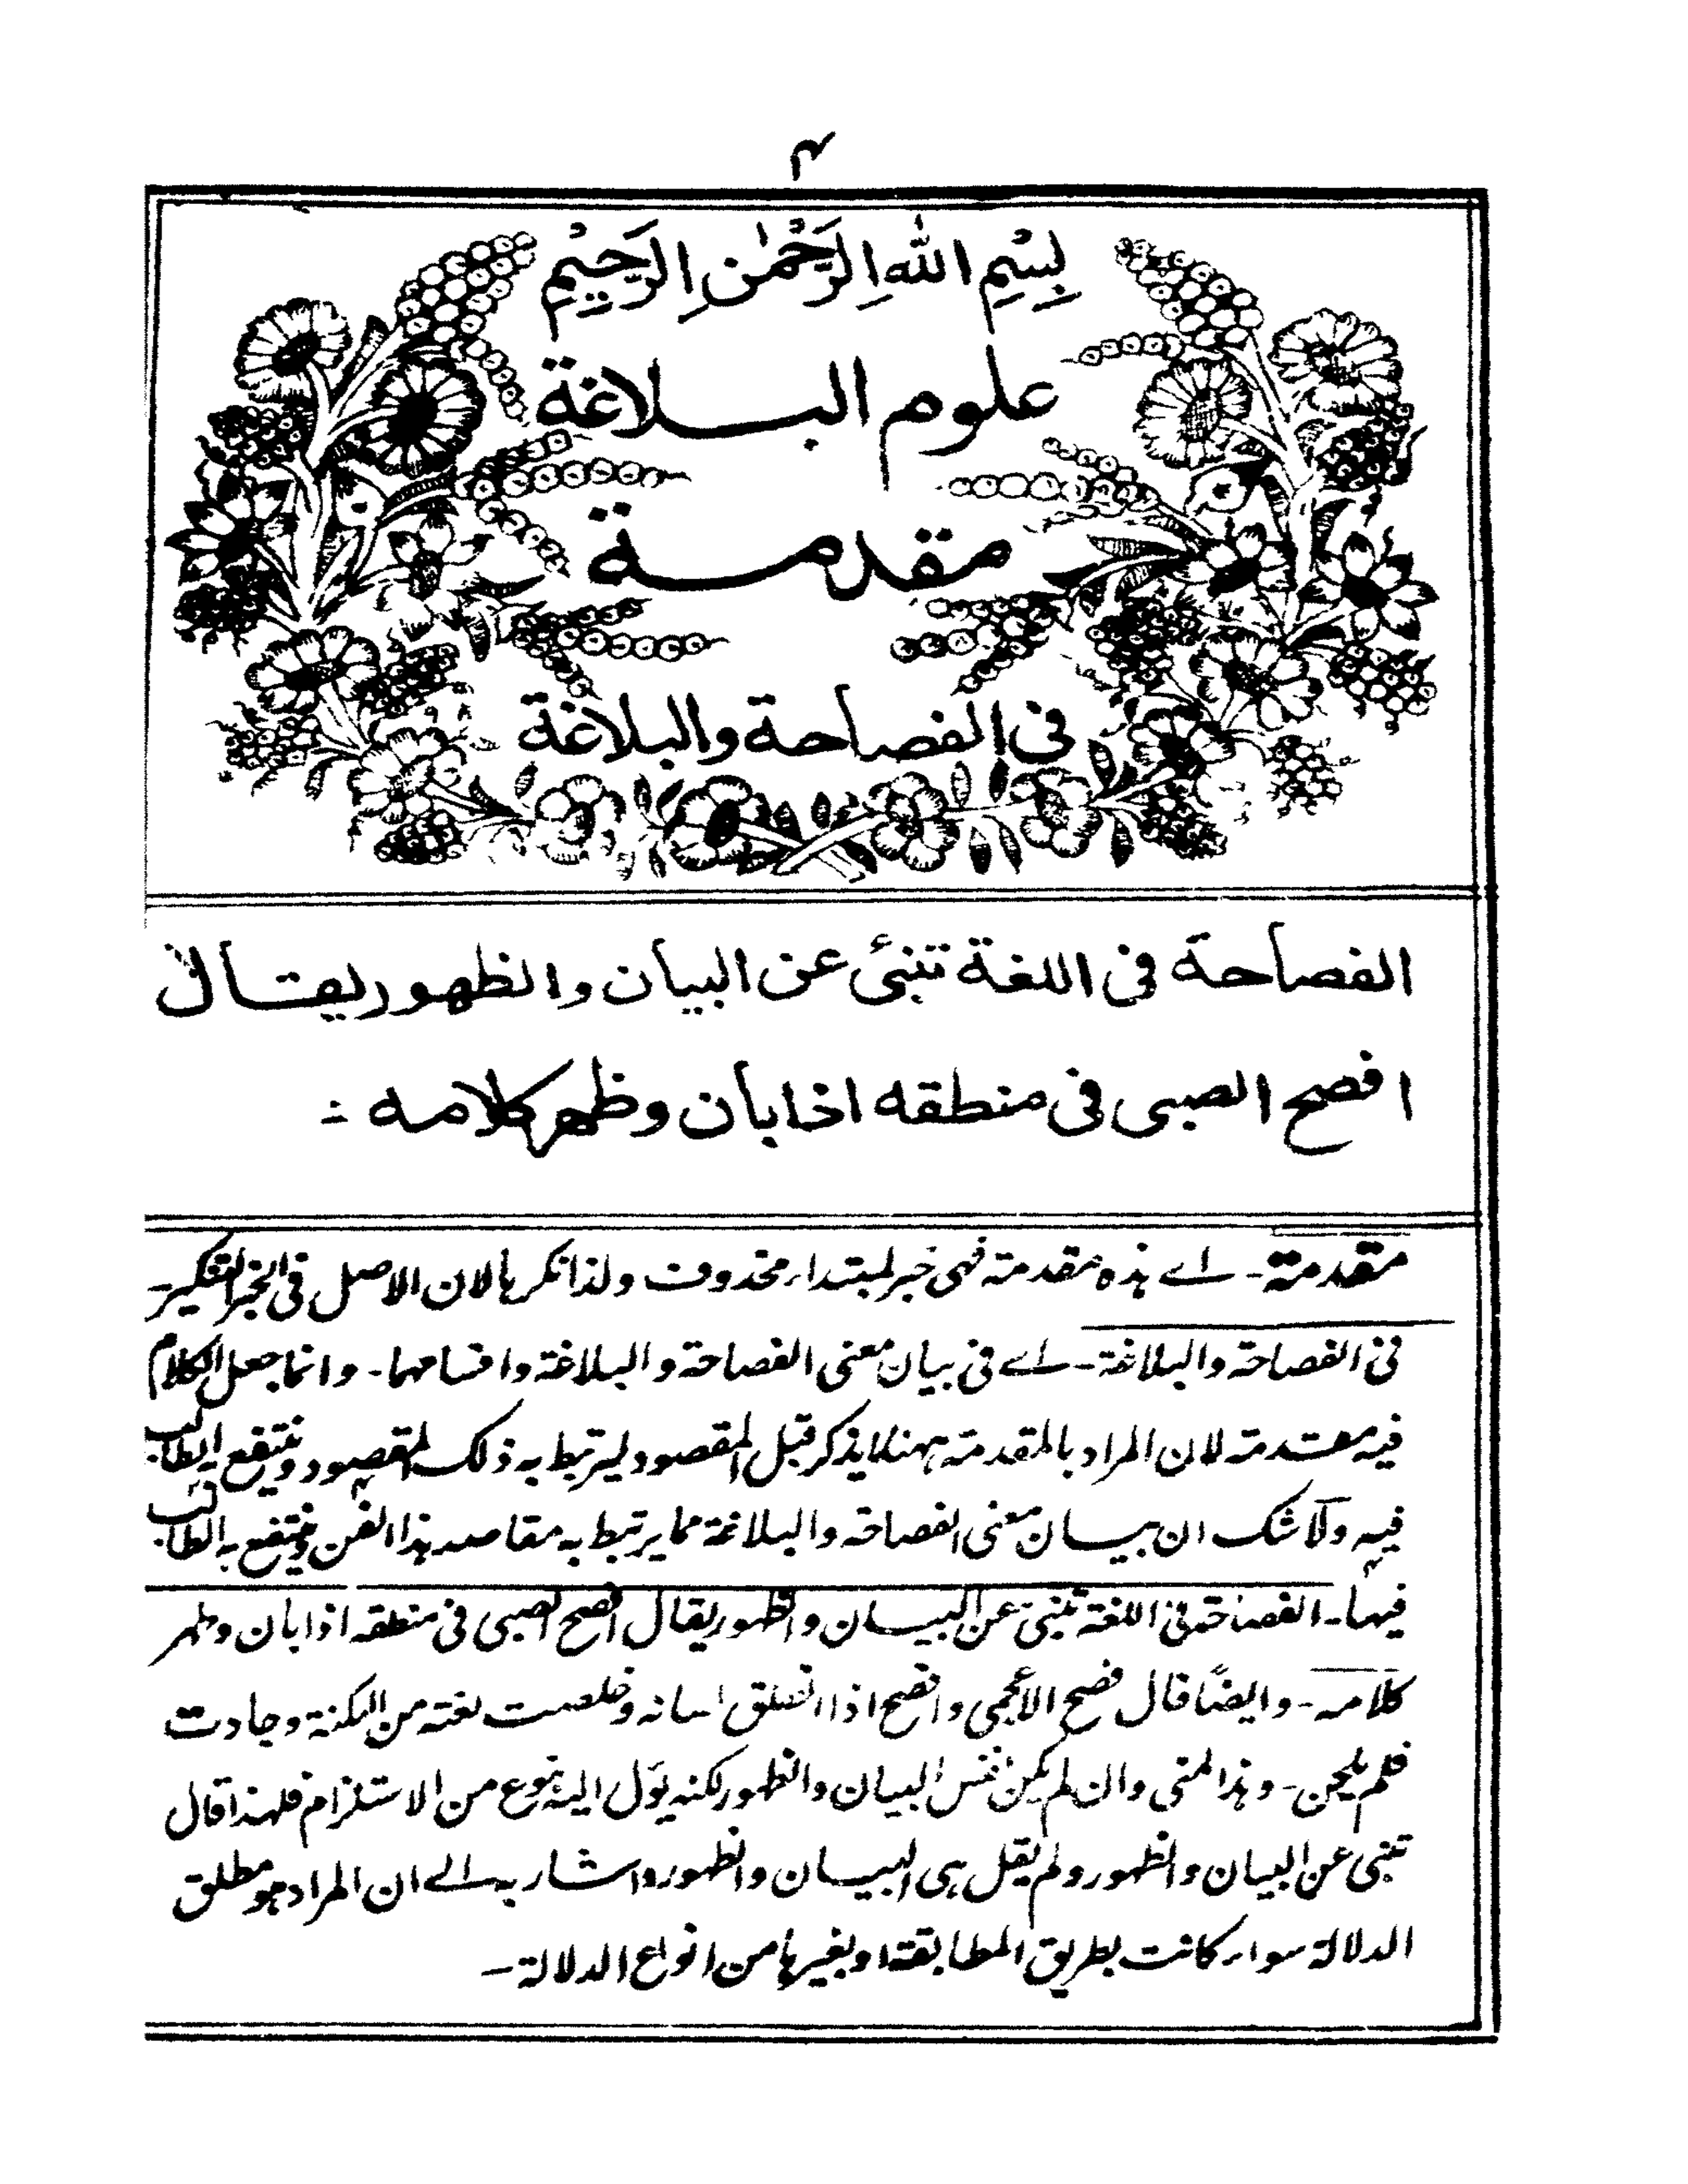 ۴
بِسْمِ اللهِ الرَّحْمٰنِ الرَّحِيْمِ
علوم البلاغة
مقدمة
فى الفصاحة والبلاغة
الفصاحة فى اللغة تنبئ عن البيان والظهور يقال
افصح الصبى فى منطقه اذا بان وظهر كلامه :
مقدمة - اے هذه مقدمة فهى خبر لمبتداء محذوف ولذا نكرها لان الاصل فى الخبر التنكير -
فى الفصاحة والبلاغة - اے فى بيان معنى الفصاحة والبلاغة واقسامهما - وانما جعل الكلام
فيه مقدمة لان المراد بالمقدمة ههنا ما يذكر قبل المقصود ليرتبط به ذلك المقصود وينتفع به الطالب
فيه ولا شك ان بيان معنى الفصاحة والبلاغة مما يرتبط به مقاصد هذا الفن وينتفع به الطالب
فيها - الفصاحة فى اللغة تنبئ عن البيان والظهور يقال افصح الصبى فى منطقه اذا بان وظهر
كلامه - وايضًا قال فصح الاعجمى وافصح اذا انطلق لسانه وخلصت لغته من اللكنة وجادت
فلم يلحن - وهذا المعنى وان لم يكن نفس البيان والظهور لكنه يؤل اليه بنوع من الاستلزام فلهذا قال
تنبئ عن البيان والظهور ولم يقل هى البيان والظهور واشار به الے ان المراد هو مطلق
الدلالة سواء كانت بطريق المطابقة او بغيرها من انواع الدلالة -